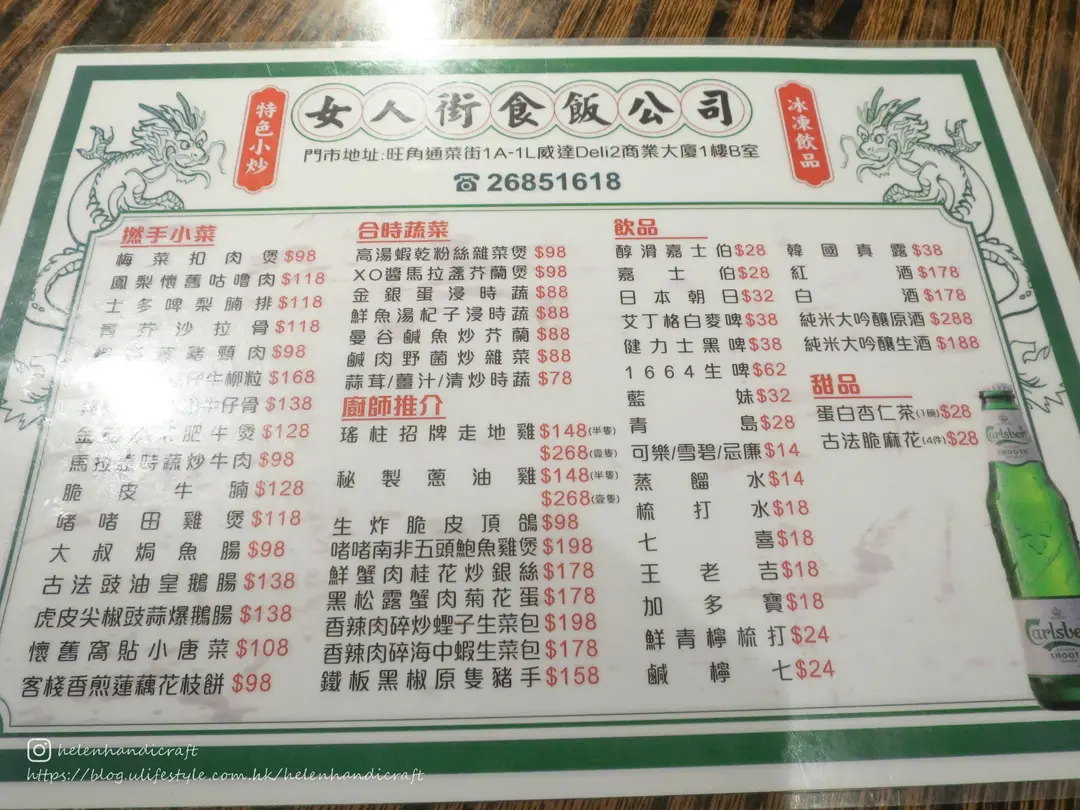 特色小炒
女人街食飯公司
冰凍飲品
門市地址:旺角通菜街1A-1L威達Deli2商業大廈1樓B室
☎26851618
撚手小菜
梅菜扣肉煲$98
鳳梨懷舊咕嚕肉$118
士多啤梨腩排$118
沙拉骨$118
豬頸肉$98
仔牛柳粒$168
牛仔骨$138
金 肥牛煲$128
馬拉 時蔬炒牛肉$98
脆皮牛腩$128
啫啫田雞煲$118
大叔焗魚腸$98
古法豉油皇鵝腸$138
虎皮尖椒豉蒜爆鵝腸$138
懷舊窩貼小唐菜$108
客棧香煎蓮藕花枝餅$98
合時蔬菜
高湯蝦乾粉絲雜菜煲$98
XO醬馬拉盞芥蘭煲$98
金銀蛋浸時蔬$88
鮮魚湯杞子浸時蔬$88
曼谷鹹魚炒芥蘭$88
鹹肉野菌炒雜菜$88
蒜茸/薑汁/清炒時蔬$78
廚師推介
瑤柱招牌走地雞$148(半隻)
$268(壹隻)
秘製蔥油雞$148(半隻)
$268(壹隻)
生炸脆皮頂鴿$98
啫啫南非五頭鮑魚雞煲$198
鮮蟹肉桂花炒銀絲$178
黑松露蟹肉菊花蛋$178
香辣肉碎炒蟶子生菜包$198
香辣肉碎海中蝦生菜包$178
鐵板黑椒原隻豬手$158
飲品
醇滑嘉士伯$28
嘉士伯$28
日本朝日$32
艾丁格白麥啤$38
健力士黑啤$38
1664生啤$62
藍妹$32
青島$28
可樂/雪碧/忌廉$14
蒸餾水$14
梳打水$18
七喜$18
王老吉$18
加多寶$18
鮮青檸梳打$24
鹹檸七$24
韓國真露$38
紅酒$178
白酒$178
純米大吟釀原酒$288
純米大吟釀生酒$188
甜品
蛋白杏仁茶(1碗)$28
古法脆麻花(4件)$28
Carlsberg
SMOOTH
Carlsbe
SMOOT
helenhandicraft
https://blog.ulifestyle.com.hk/helenhandicraft